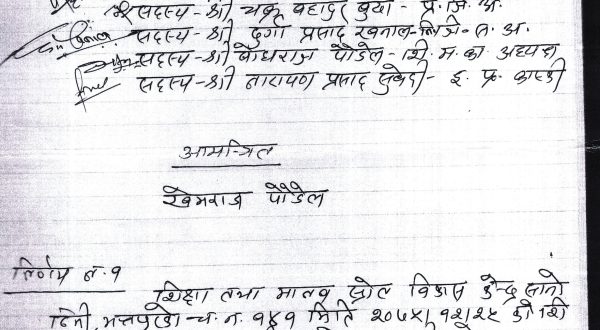 सदस्य - श्री चक्र बहादुर बुढा - प्र. जि. अ.
सदस्य - श्री दुर्गा प्रसाद खनाल - जि.शि. अ.
सदस्य - श्री बोधराज पौडेल - शि. म. का. अध्यक्ष
सदस्य - श्री नारायण प्रसाद सुवेदी - इ. प्र. कास्की
आमन्त्रित
खेमराज पौडेल
निर्णय नं. १
शिक्षा तथा मानव स्रोत विकास केन्द्र सानो
ठिमी, भक्तपुरको च. न. १४१ मिति २०७५।१२।२५ को